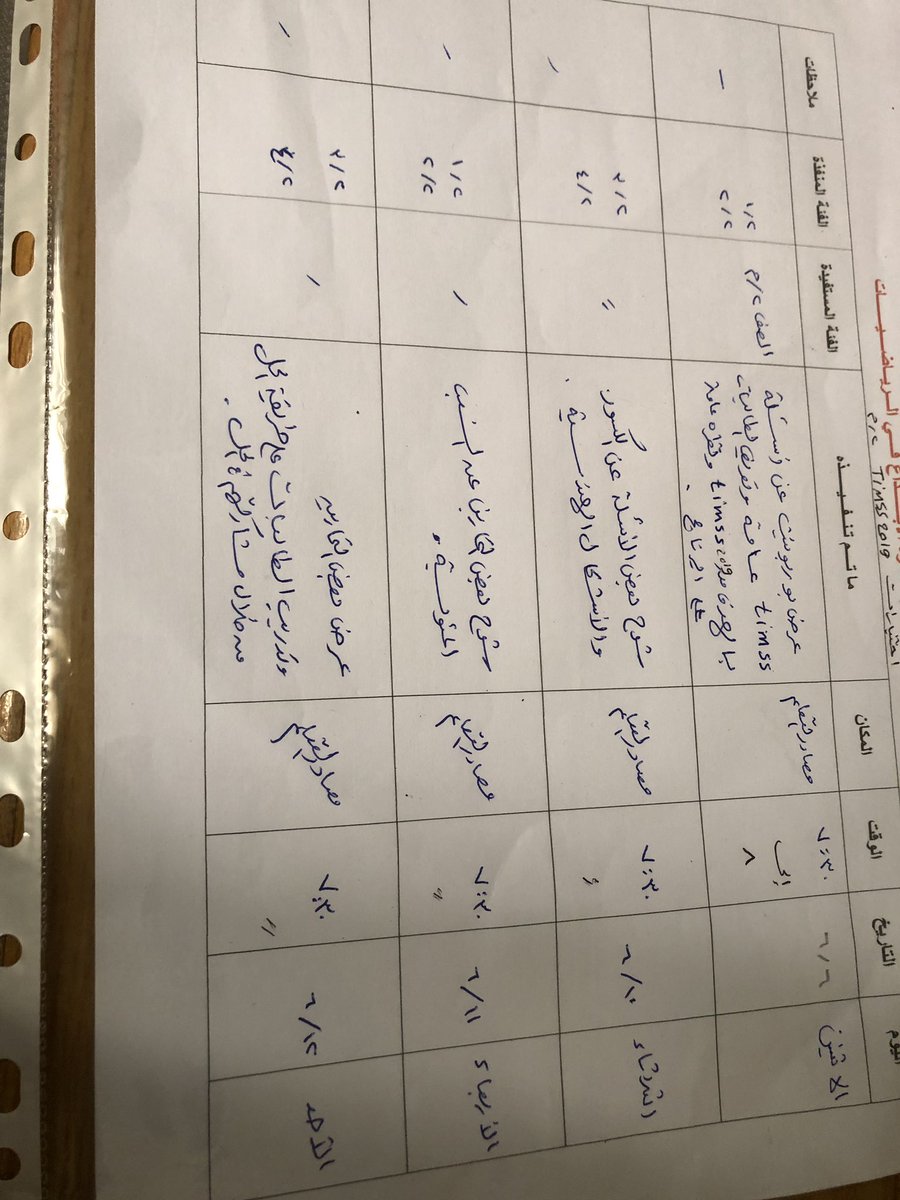 الإبداع في الرياضيات
اختبارات TIMSS 2019 م/٢
اليوم التاريخ الوقت المكان ما تم تنفيذه الفئة المستفيدة الفئة المنفذة ملاحظات
الاثنين
٧:٣٠
إلى
٨
مصادر التعلم
عرض بوربوينت عن أسئلة
timss عامة وتعريف الطالبات
بالهدف من timss 2019 ونظرة عامة
الصف ٢/م
١/٢
٢/٢
–
الثلاثاء
٦/١٠
٧:٣٠
〃
مصادر التعلم
شرح بعض الأسئلة عن الكسور
والأشكال الهندسية .
〃
٣/٢
٤/٢
الأربعاء
٦/١١
٧:٣٠
〃
مصادر التعلم
شرح بعض التمارين عن النسب
المئوية .
١/٢
٢/٢
الأحد
٧:٣٠
〃
مصادر التعلم
عرض بعض التمارين
وتدريب الطالبات على طريقة الحل
من خلال مشاركتهم في الحل .
٣/٢
٤/٢